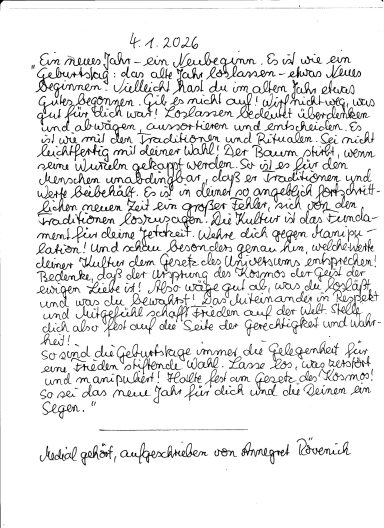 4.1.2026
"Ein neues Jahr - ein Neubeginn. Es ist wie ein
Geburtstag: das alte Jahr loslassen - etwas Neues
beginnen. Vielleicht hast du im alten Jahr etwas
Gutes begonnen. Gib es nicht auf! Wirf nicht weg, was
gut für dich war! Loslassen bedeutet überdenken
und abwägen, aussortieren und entscheiden. Es
ist wie mit den Traditionen und Ritualen. Sei nicht
leichtfertig mit deiner Wahl! Der Baum stirbt, wenn
seine Wurzeln gekappt werden. So ist es für den
Menschen unabdingbar, daß er Traditionen und
Werte beibehält. Es ist in deiner so angeblich fortschritt-
lichen neuen Zeit ein großer Fehler, sich von den
Traditionen loszusagen. Die Kultur ist das Funda-
ment für deine Jetztzeit. Wehre dich gegen Manipu-
lation! Und schau besonders genau hin, welche Werte
deiner Kultur dem Gesetz des Universums entsprechen!
Bedenke, daß der Ursprung des Kosmos der Geist der
ewigen Liebe ist! Also wäge gut ab, was du losläßt
und was du bewahrst! Das Miteinander in Respekt
und Mitgefühl schafft Frieden auf der Welt. Stelle
dich also fest auf die Seite der Gerechtigkeit und Wahr-
heit!
So sind die Geburtstage immer die Gelegenheit für
eine Frieden stiftende Wahl. Lasse los, was zerstört
und manipuliert! Halte fest am Gesetz des Kosmos!
So sei das neue Jahr für dich und die Deinen ein
Segen."
Medial gehört, aufgeschrieben von Annegret Rövenich